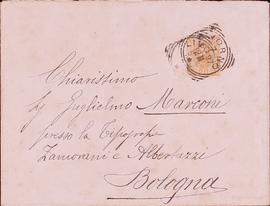 Chiarissimo
Sig Guglielmo Marconi
presso la Tipografia
Zamorani e Albertazzi
Bologna